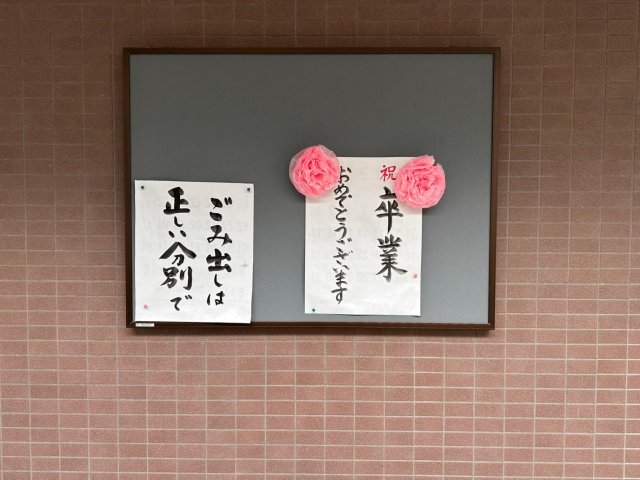 祝
卒業
おめでとうございます
ごみ出しは
正しい分別で